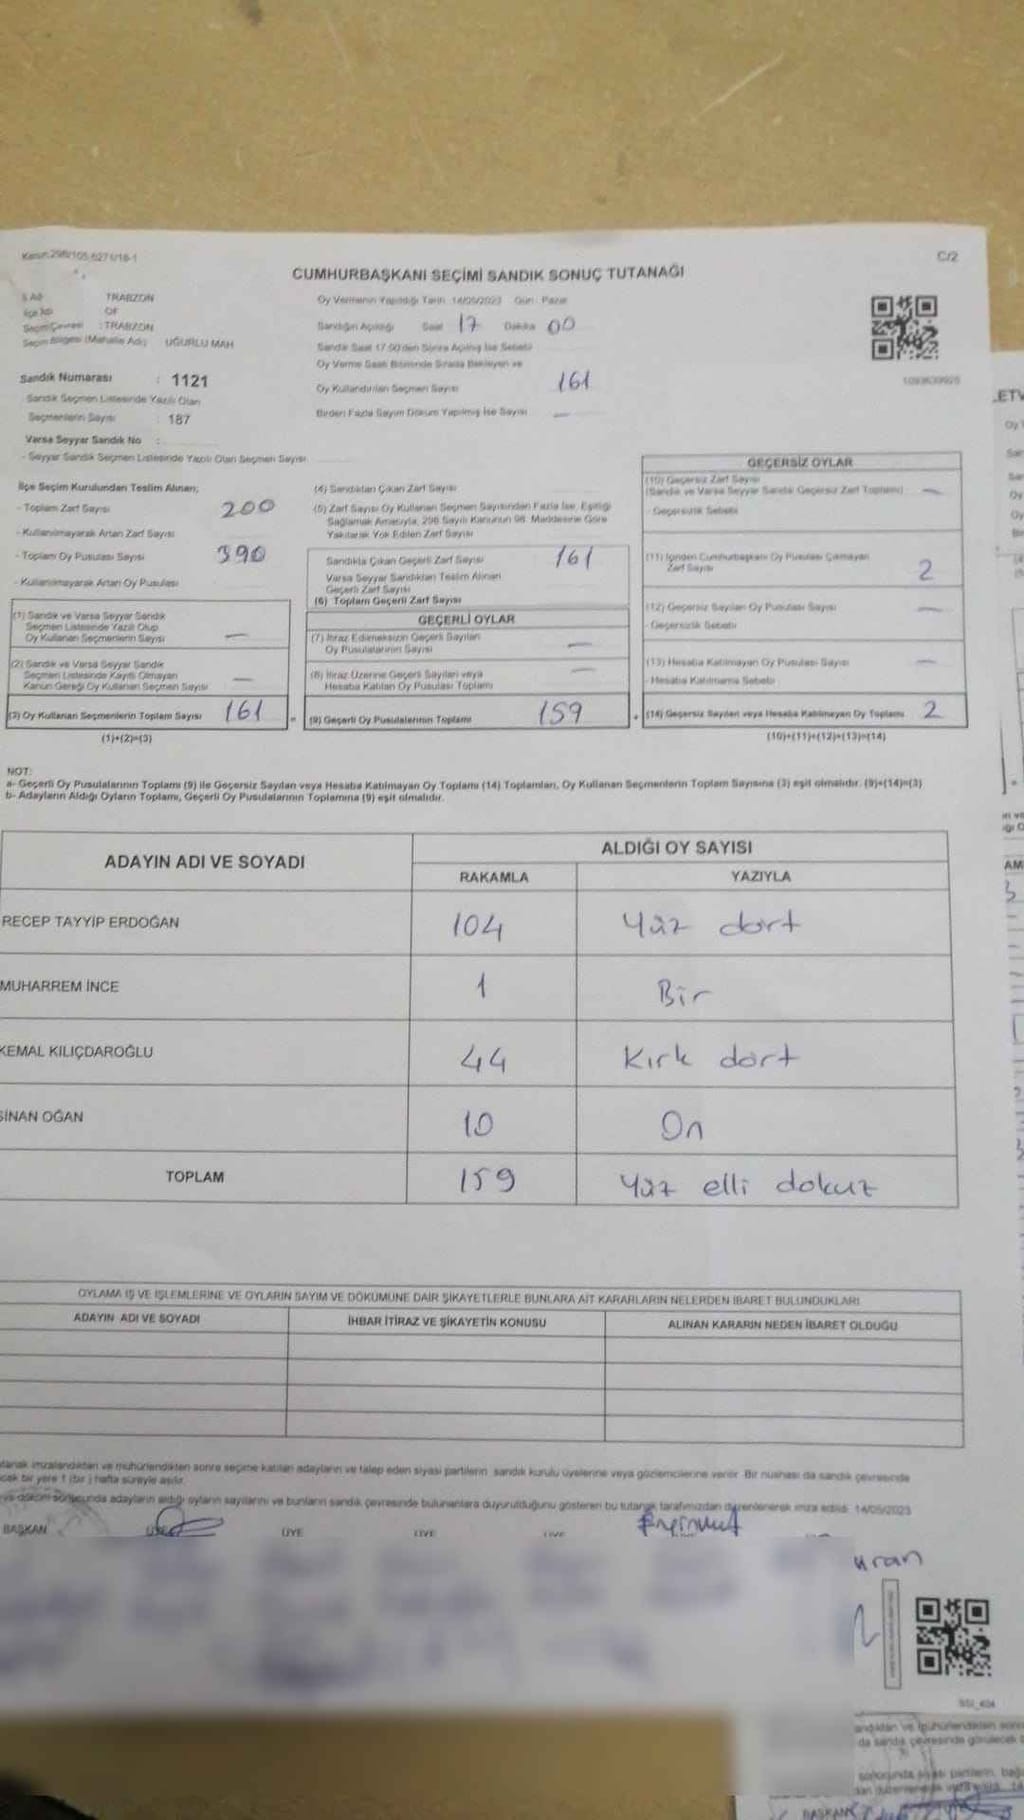 C/2
CUMHURBAŞKANI SEÇİMİ SANDIK SONUÇ TUTANAĞI
İl Adı TRABZON
İlçe Adı OF
Seçim Çevresi : TRABZON
Seçim Bölgesi (Mahalle Adı) UĞURLU MAH
Sandık Numarası : 1121
Sandık Seçmen Listesinde Yazılı Olan
Seçmenlerin Sayısı : 187
Varsa Seyyar Sandık No :
- Seyyar Sandık Seçmen Listesinde Yazılı Olan Seçmen Sayısı
Oy Vermenin Yapıldığı Tarih 14/05/2023 Gün: Pazar
Sandığın Açıldığı Saat 17 Dakika 00
Sandık Saat 17:00'den Sonra Açılmış İse Sebebi
Oy Verme Saati Bitiminde Sırada Bekleyen ve
Oy Kullandırılan Seçmen Sayısı 161
Birden Fazla Sayım Döküm Yapılmış İse Sayısı —
İlçe Seçim Kurulundan Teslim Alınan;
- Toplam Zarf Sayısı 200
- Kullanılmayarak Artan Zarf Sayısı
- Toplam Oy Pusulası Sayısı 390
- Kullanılmayarak Artan Oy Pusulası
(1) Sandık ve Varsa Seyyar Sandık
Seçmen Listesinde Yazılı Olup
Oy Kullanan Seçmenlerin Sayısı —
(2) Sandık ve Varsa Seyyar Sandık
Seçmen Listesinde Kayıtlı Olmayan
Kanun Gereği Oy Kullanan Seçmen Sayısı —
(3) Oy Kullanan Seçmenlerin Toplam Sayısı 161
(1)+(2)=(3)
(4) Sandıktan Çıkan Zarf Sayısı
(5) Zarf Sayısı Oy Kullanan Seçmen Sayısından Fazla İse, Eşitliği
Sağlamak Amacıyla, 298 Sayılı Kanunun 98. Maddesine Göre
Yakılarak Yok Edilen Zarf Sayısı
Sandıkta Çıkan Geçerli Zarf Sayısı 161
Varsa Seyyar Sandıktan Teslim Alınan
Geçerli Zarf Sayısı
(6) Toplam Geçerli Zarf Sayısı
GEÇERLİ OYLAR
(7) İtiraz Edilmeksizin Geçerli Sayılan
Oy Pusulalarının Sayısı —
(8) İtiraz Üzerine Geçerli Sayılan veya
Hesaba Katılan Oy Pusulası Toplamı —
= (9) Geçerli Oy Pusulalarının Toplamı 159
GEÇERSİZ OYLAR
(10) Geçersiz Zarf Sayısı
(Sandık ve Varsa Seyyar Sandık Geçersiz Zarf Toplamı) —
- Geçersizlik Sebebi
(11) İçinden Cumhurbaşkanı Oy Pusulası Çıkmayan
Zarf Sayısı 2
(12) Geçersiz Sayılan Oy Pusulası Sayısı —
- Geçersizlik Sebebi
(13) Hesaba Katılmayan Oy Pusulası Sayısı —
- Hesaba Katılmama Sebebi
+ (14) Geçersiz Sayılan veya Hesaba Katılmayan Oy Toplamı 2
(10)+(11)+(12)+(13)=(14)
NOT:
a- Geçerli Oy Pusulalarının Toplamı (9) ile Geçersiz Sayılan veya Hesaba Katılmayan Oy Toplamı (14) Toplamları, Oy Kullanan Seçmenlerin Toplam Sayısına (3) eşit olmalıdır. (9)+(14)=(3)
b- Adayların Aldığı Oyların Toplamı, Geçerli Oy Pusulalarının Toplamına (9) eşit olmalıdır.
ADAYIN ADI VE SOYADI
ALDIĞI OY SAYISI
RAKAMLA YAZIYLA
RECEP TAYYİP ERDOĞAN 104 Yüz dört
MUHARREM İNCE 1 Bir
KEMAL KILIÇDAROĞLU 44 Kırk dört
SİNAN OĞAN 10 On
TOPLAM 159 Yüz elli dokuz
OYLAMA İŞ VE İŞLEMLERİNE VE OYLARIN SAYIM VE DÖKÜMÜNE DAİR ŞİKAYETLERLE BUNLARA AİT KARARLARIN NELERDEN İBARET BULUNDUKLARI
ADAYIN ADI VE SOYADI İHBAR İTİRAZ VE ŞİKAYETİN KONUSU ALINAN KARARIN NEDEN İBARET OLDUĞU
imzalandıktan ve mühürlendikten sonra seçime katılan adayların ve talep eden siyasi partilerin sandık kurulu üyelerine veya gözlemcilerine verilir. Bir nüshası da sandık çevresinde
bir yere 1 (bir) hafta süreyle asılır.
sonucunda adayların aldığı oyların sayılarını ve bunların sandık çevresinde bulunanlara duyurulduğunu gösteren bu tutanak tarafımızdan düzenlenerek imza edildi. 14/05/2023
BAŞKAN ÜYE ÜYE ÜYE
BAŞKAN